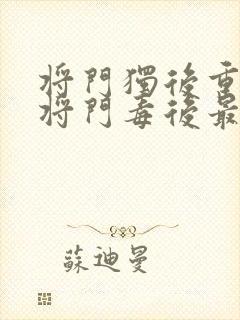 將門獨後重
將門毒後最
蘇迪曼